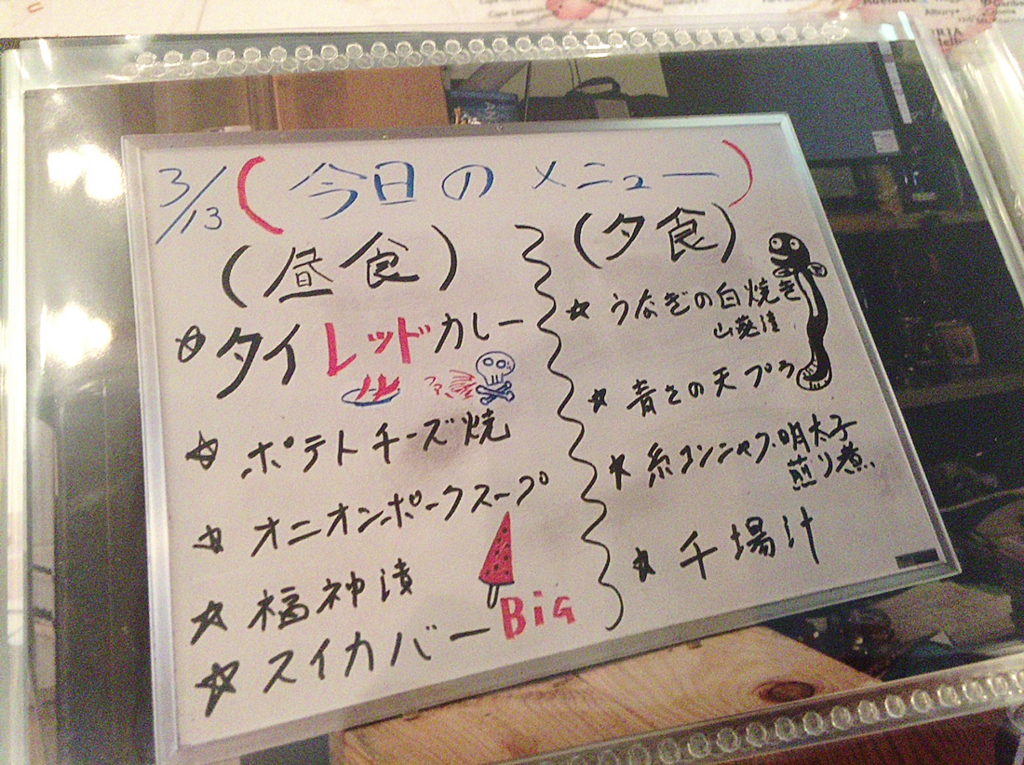 3/13 (今日のメニュー)
(昼食)
☆ タイレッドカレー
☆ ポテトチーズ焼
☆ オニオンポークスープ
☆ 福神漬
☆ スイカバー BiG
(夕食)
☆ うなぎの白焼き
山葵漬
☆ 青さの天プラ
☆ 糸コンニャク明太子
煎り煮
☆ 千場汁